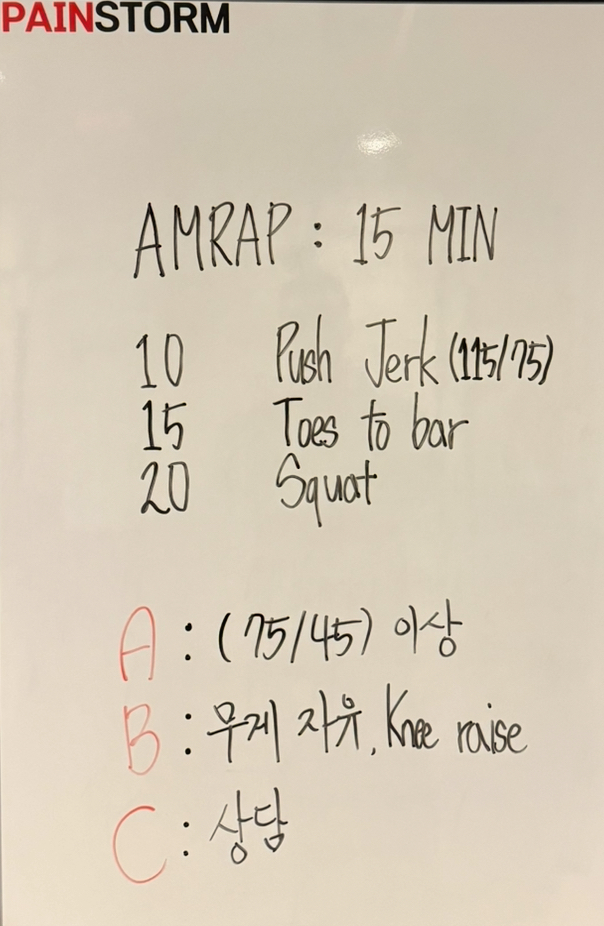 PAINSTORM
AMRAP : 15 MIN
10 Push Jerk (115/75)
15 Toes to bar
20 Squat
A : (75/45) 이상
B : 무게 자유, Knee raise
C : 상담